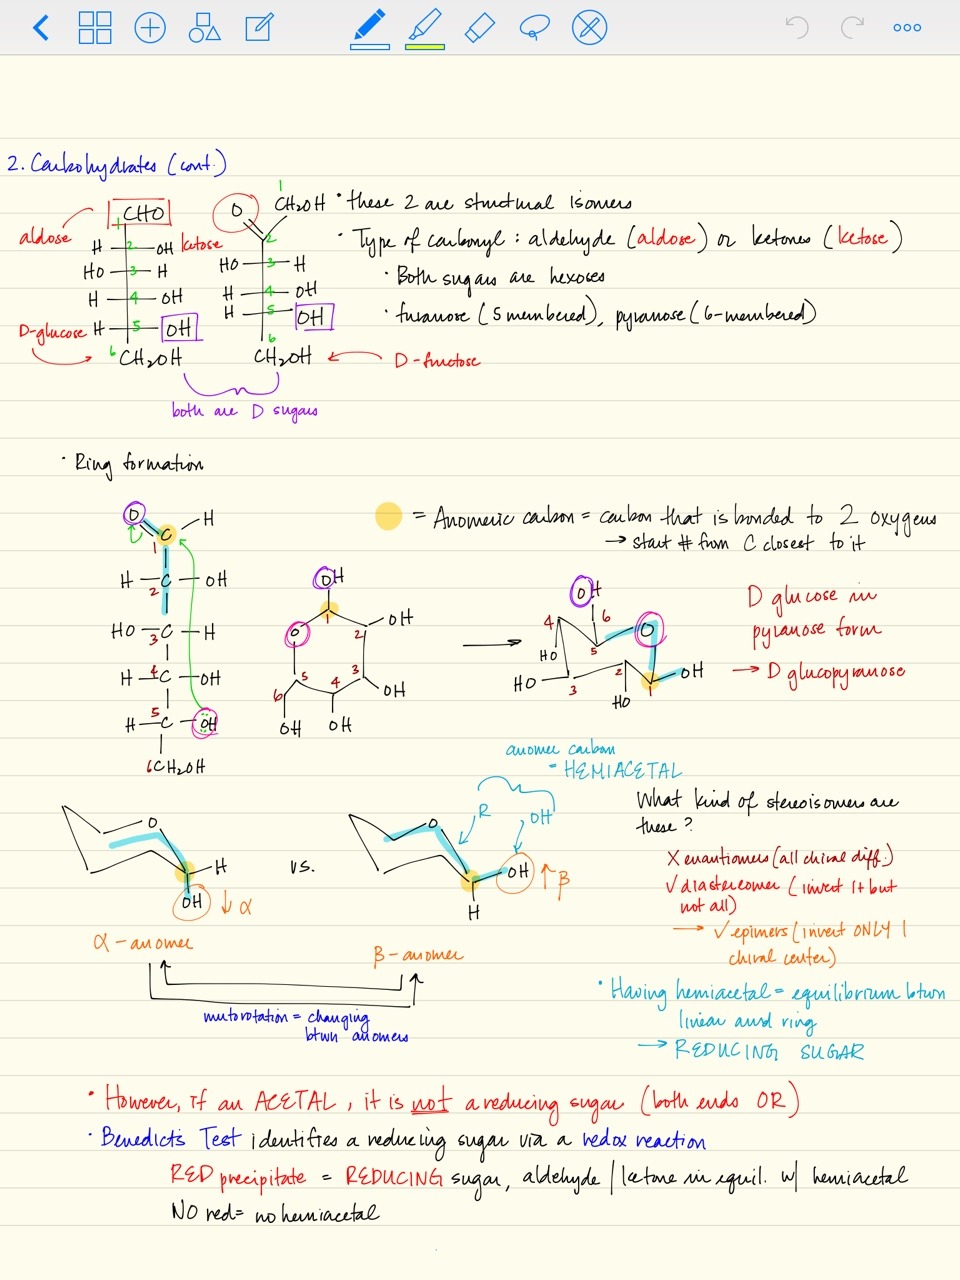 2. Carbohydrates (cont.)
aldose
CHO
1
H 2 OH
HO 3 H
H 4 OH
D-glucose H 5 OH
6 CH₂OH
ketose
1
O CH₂OH
2
HO 3 H
H 4 OH
H 5 OH
6
CH₂OH
D-fuctose
both are D sugars
· these 2 are structural isomers
· Type of carbonyl : aldehyde (aldose) or ketones (ketose)
· Both sugars are hexoses
· furanose (5 membered), pyranose (6-membered)
· Ring formation
O C H
1
H C OH
2
HO C H
3
H 4 C OH
5
H C OH
6 CH₂OH
OH
1
O 2 OH
5 4 3
6 OH
OH OH
= Anomeric carbon = carbon that is bonded to 2 oxygens
→ start # from C closest to it
OH
4 6 O
HO 5
HO 3 2 1 OH
HO
D glucose in
pyranose form
→ D glucopyranose
anomer carbon
- HEMIACETAL
R OH
O
H
OH ↓ α
α-anomer
vs.
O
OH ↑ β
H
β-anomer
mutorotation = changing
btwn anomers
What kind of stereoisomers are
these?
X enantiomers (all chiral diff.)
√ diastereomer (invert 1+ but
not all)
→ √ epimers (invert ONLY 1
chiral center)
· Having hemiacetal = equilibrium btwn
linear and ring
→ REDUCING SUGAR
· However, if an ACETAL, it is not a reducing sugar (both ends OR)
· Benedict's Test identifies a reducing sugar via a redox reaction
RED precipitate = REDUCING sugar, aldehyde / ketone in equil. w/ hemiacetal
NO red = no hemiacetal